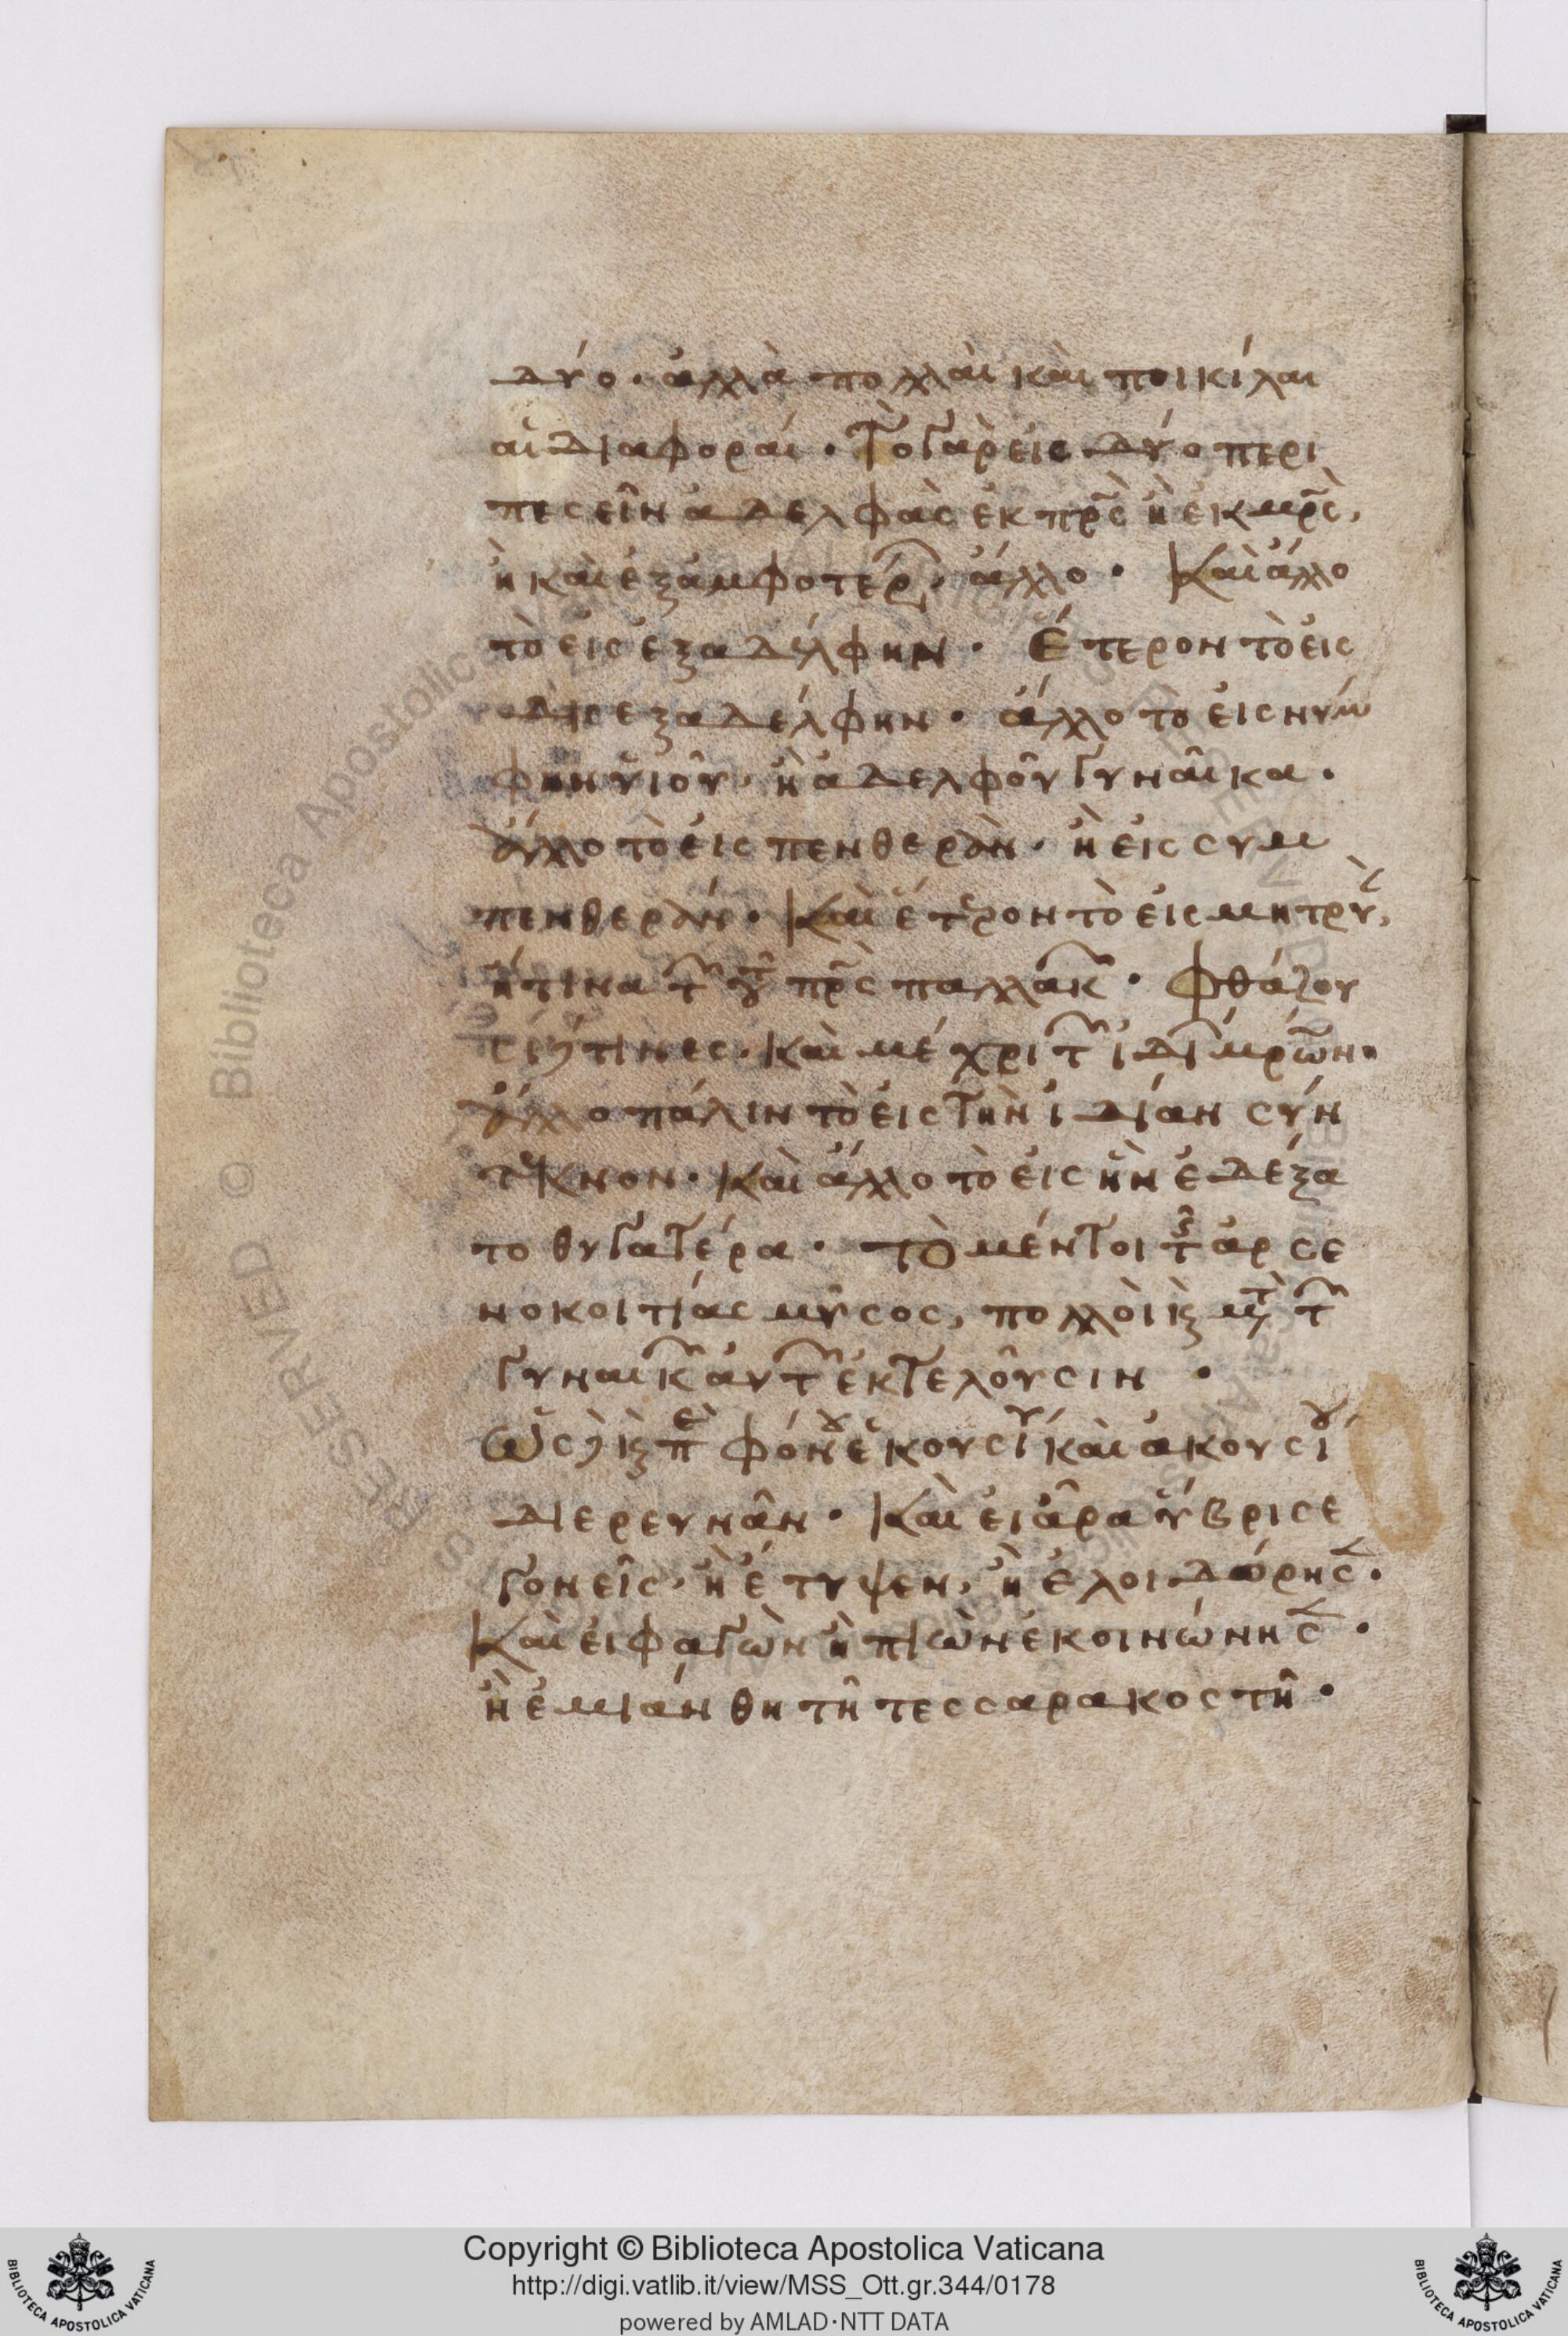 δύο· ἀλλὰ πολλαὶ καὶ ποικίλαι
αἱ διαφοραί· Τὸ γὰρ εἰς δύο περι
πεσεῖν ἀδελφὰς ἐκ πρ̅ς ἢ ἐκ μρ̅ς,
ἢ καὶ ἐξ ἀμφοτέρ, ἄλλο· Καὶ ἄλλο
τὸ εἰς ἐξαδέλφην· Ἕτερον τὸ εἰς
δὶς ἐξαδέλφην· ἄλλο τὸ εἰς νύμ
φην υἱοῦ· ἢ ἀδελφοῦ γυναῖκα·
ἄλλο τὸ εἰς πενθερὰν· ἢ εἰς συμ
πενθεράν· Καὶ ἕτερον τὸ εἰς μητρυ,
ἤ τινα τ τοῦ πρ̅ς παλλακ· Φθάνου
σι δὲ τινὲς· καὶ μέχρι τ ἰδι μρ̅ων·
ἄλλο πάλιν τὸ εἰς τὴν ἰδίαν σύν
τεκνον· Καὶ ἄλλο τὸ εἰς ἣν ἐδέξα
το θυγατέρα· Τὸ μέντοι τῆς ἀρσε
νοκοιτίας μῦσος, πολλοὶ κ μετὰ τ
γυναικ αὐτ ἐκτελοῦσιν·
Ὡς δὲ κ πε φόνου ἑκουσίου καὶ ἀκουσίου
διερευνᾶν· Καὶ εἰ ἆρα ὕβρισε
γονεῖς· ἢ ἔτυψεν, ἢ ἐλοιδόρησ·
Καὶ εἰ φαγὼν ἢ πιὼν ἐκοινώνησ·
ἢ ἐμιάνθη τῆ τεσσαρακοστῆ·
Copyright © Biblioteca Apostolica Vaticana
http://digi.vatlib.it/view/MSS_Ott.gr.344/0178
powered by AMLAD·NTT DATA
BIBLIOTECA APOSTOLICA VATICANA
BIBLIOTECA APOSTOLICA VATICANA